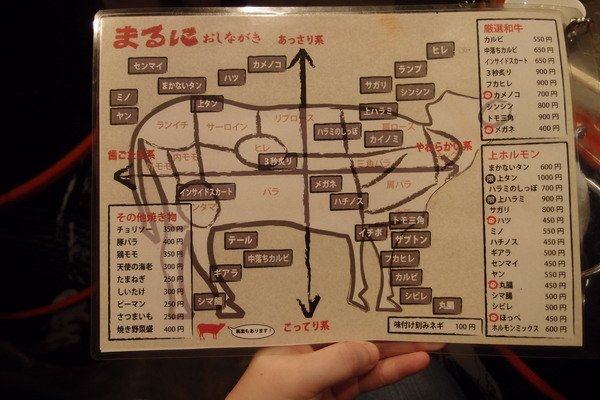 まるに おしながき
あっさり系
センマイ
カメノコ
ヒレ
まかないタン
ハツ
ランプ
ミノ
上タン
サガリ
シンシン
ヤン
上ハラミ
ランイチ
サーロイン
リブロース
肩ロース
ハラミのしっぽ
カイノミ
ヒレ
歯ごたえ系
内モモ
3秒炙り
三角バラ
やわらかい系
インサイドスカート
バラ
メガネ
肩バラ
ハチノス
トモ三角
イチボ
ザブトン
テール
中落ちカルビ
フカヒレ
ギアラ
カルビ
シマ腸
シビレ
丸腸
こってり系
裏面もあります!
味付け刻みネギ 100円
その他焼き物
チョリソー 350円
豚バラ 400円
鶏モモ 350円
天使の海老 400円
たまねぎ 250円
しいたけ 300円
ピーマン 250円
さつまいも 250円
焼き野菜盛 400円
厳選和牛
カルビ 550円
中落ちカルビ 650円
インサイドスカート 650円
3秒炙り 900円
フカヒレ 900円
カメノコ 700円
シンシン 800円
トモ三角 900円
メガネ 400円
上ホルモン
まかないタン 600円
限 上タン 1000円
ハラミのしっぽ 700円
限 上ハラミ 900円
サガリ 800円
ハツ 450円
ミノ 550円
ハチノス 450円
ギアラ 500円
センマイ 450円
ヤン 550円
丸腸 450円
シマ腸 500円
シビレ 500円
ほっぺ 450円
ホルモンミックス 600円